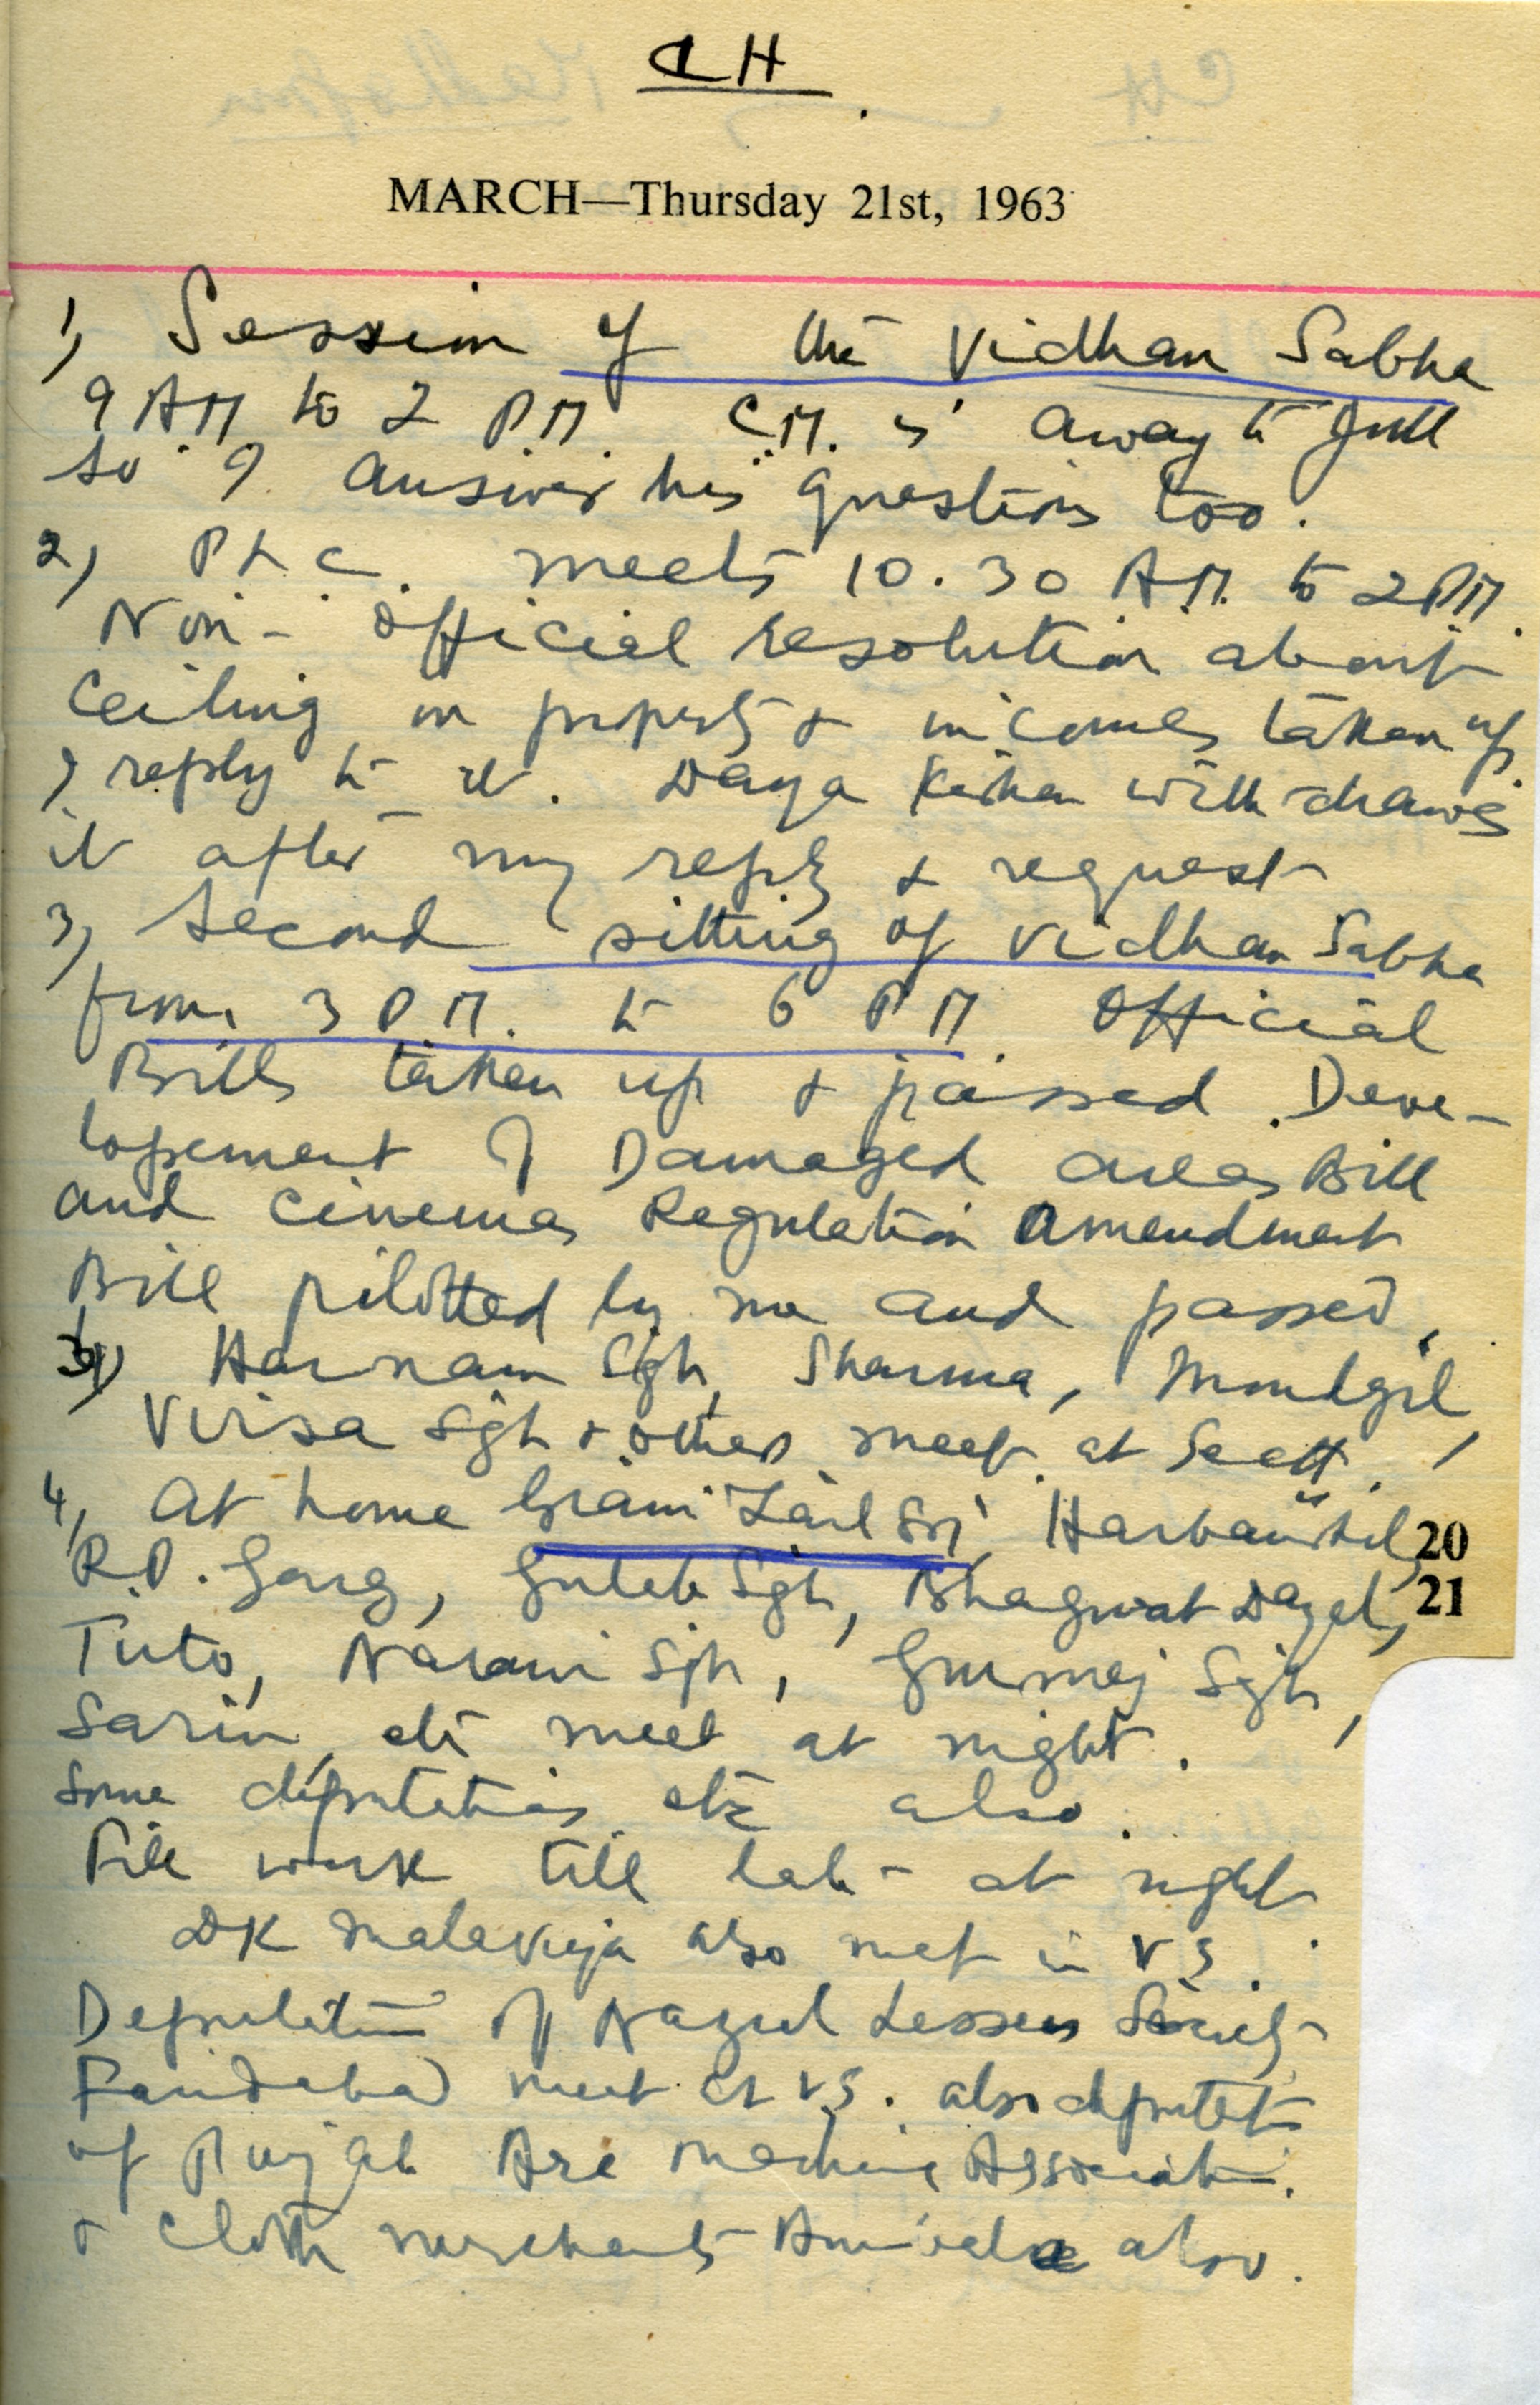 CH
MARCH—Thursday 21st, 1963
1) Session of the Vidhan Sabha
9 AM to 2 PM. C.M. is away to Jull
so I answer his questions too.
2) P.L.C. meets 10.30 A.M. to 2 PM.
Non-official resolution about
ceiling on property & incomes taken up
I reply to it. Daya Kishan withdraws
it after my reply & request
3) Second sitting of Vidhan Sabha
from 3 P.M. to 6 PM. Official
Bills taken up & passed. Deve-
lopement of Damaged areas Bill
and cinemas Regulation Amendment
Bill pilotted by me and passed.
3) Harnam Sgh, Sharma, Moudgil,
Virsa Sgh & others meet at Sectt.
4) At home Giani Zail Sgh, Harbans Lal,
R.P. Garg, Gulab Sgh, Bhagwat Dayal,
20
21
Tirto, Narain Sgh, Gurmej Sgh,
Sarin etc meet at night.
Some deputations etc also.
File work till late at night.
DK Malaviya also met in VS.
Deputation of Nazul Lessees Society
Faridabad meet at VS. also deputation
of Punjab Ara Machine Association.
& Cloth merchants also.